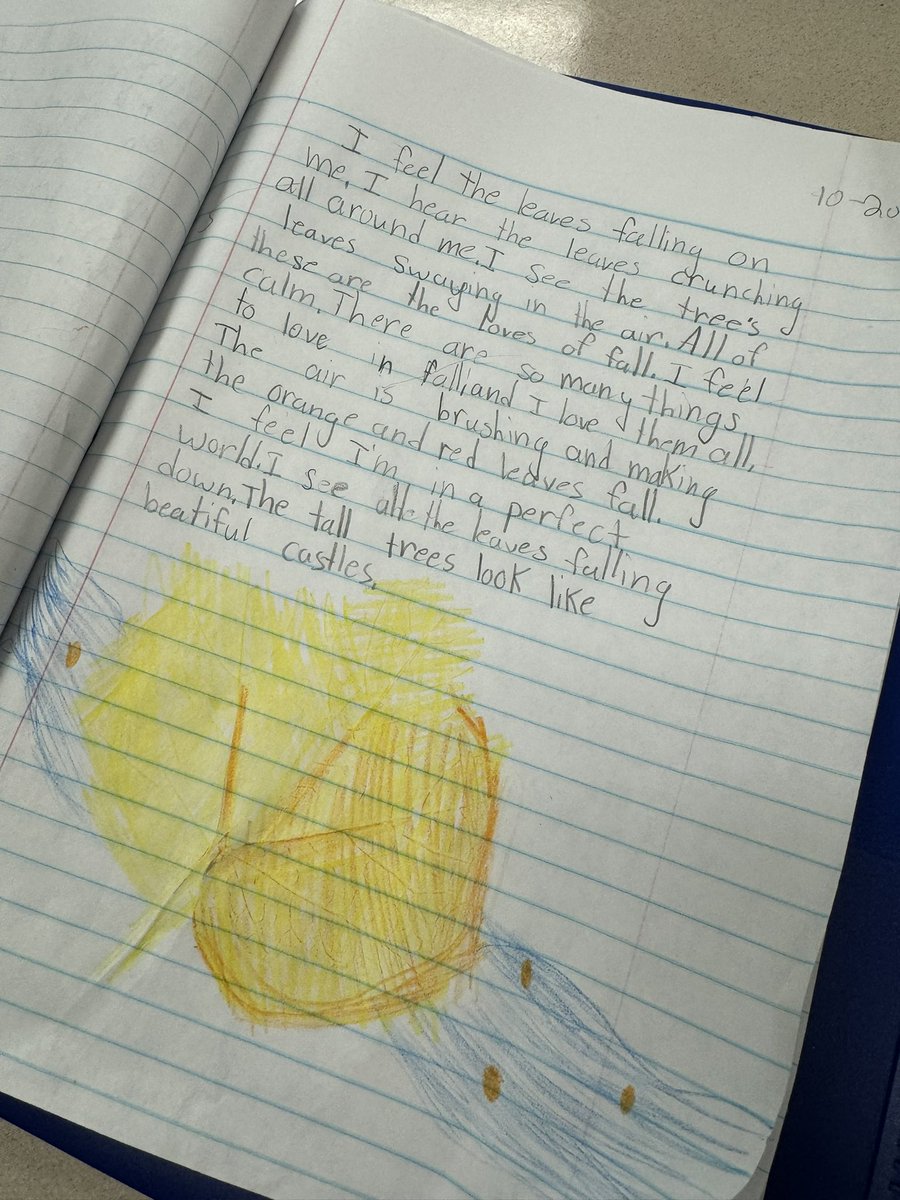 10-20
I feel the leaves falling on
me. I hear the leaves crunching
all around me. I see the tree's
leaves swaying in the air. All of
these are the loves of fall. I feel
calm. There are so many things
to love in fall, and I love them all.
The air is brushing and making
the orange and red leaves fall.
I feel I'm in a perfect
world. I see all the leaves falling
down. The tall trees look like
beatiful castles.